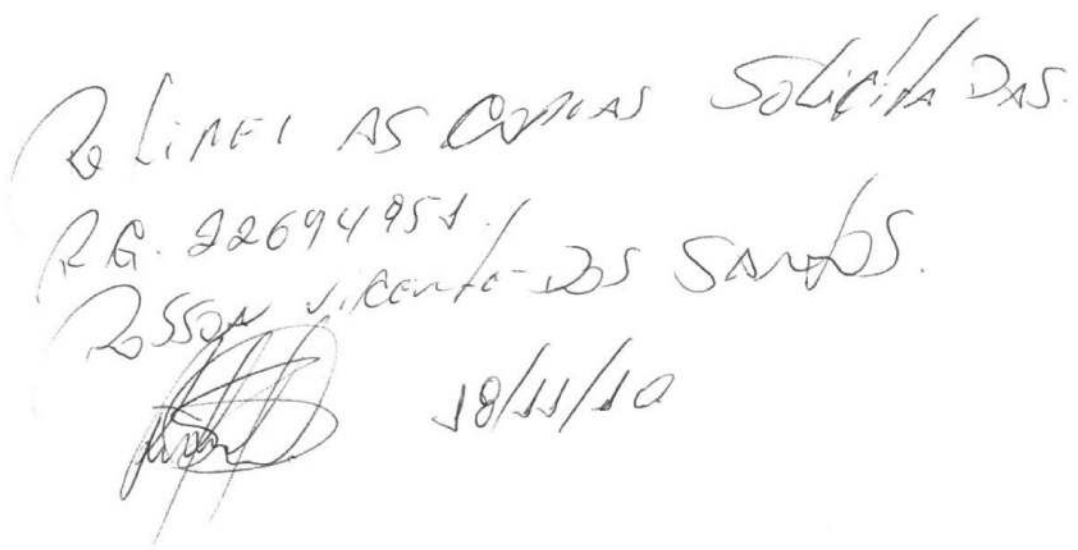 Retirei AS COPIAS SOLICITADAS.
RG. 22694951.
Vicente DOS SANTOS.
18/11/10